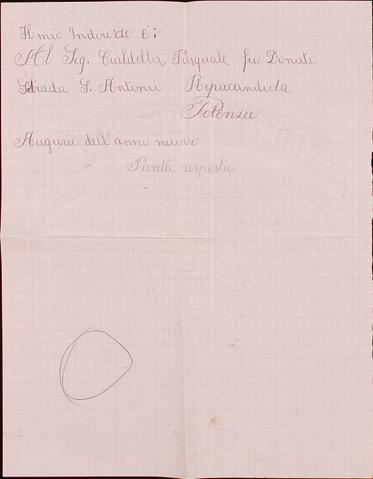 Il mio Indirizzo è:-
Al Sig. Cialdella Pasquale fu Donato
Strada S. Antonio Ripacandida
Potenza
Augurii dell'anno nuovo
Pronta risposta